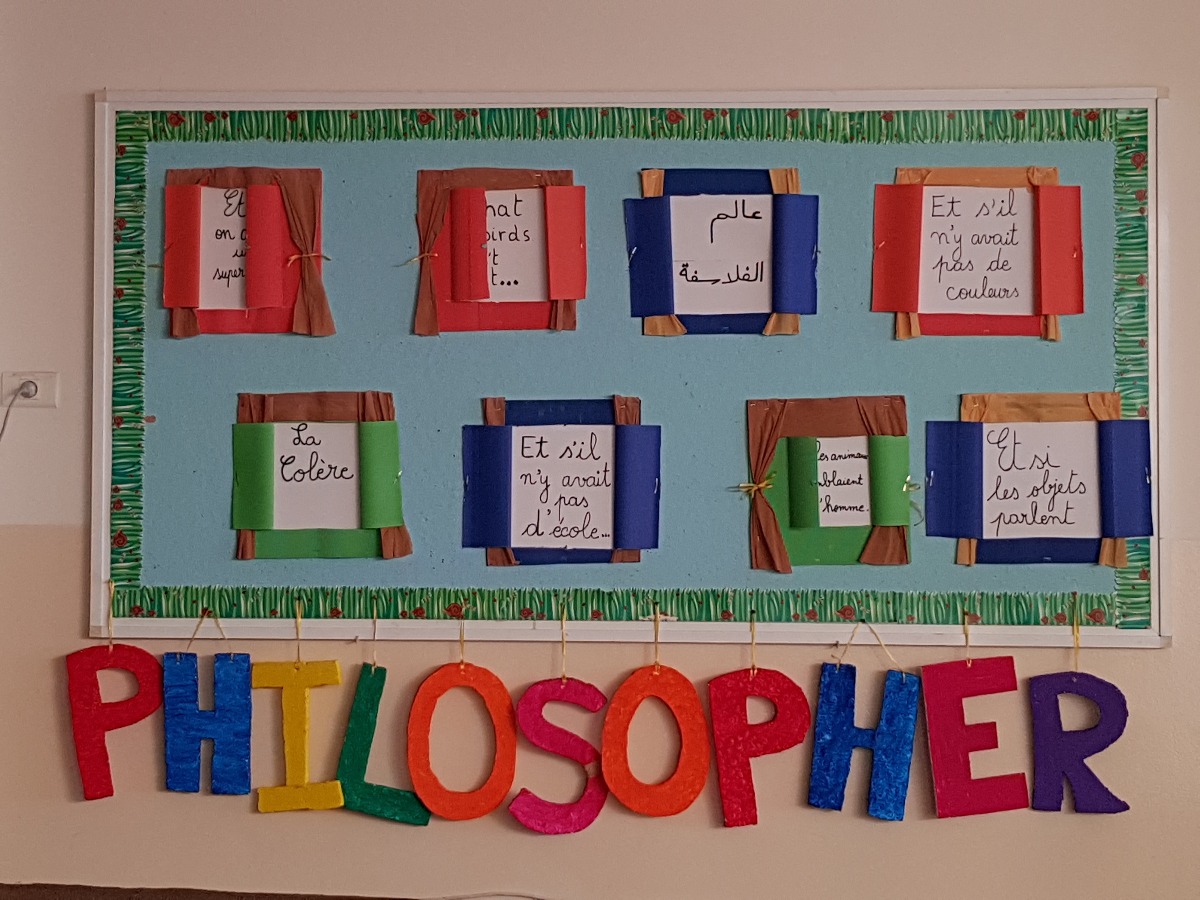 Et
on
super
hat
birds
't
t...
عالم
الفلاسفة
Et s'il
n'y avait
pas de
couleurs
La
Colère
Et s'il
n'y avait
pas
d'école...
les animaux
mblaient
l'homme.
Et si
les objets
parlent
PHILOSOPHER